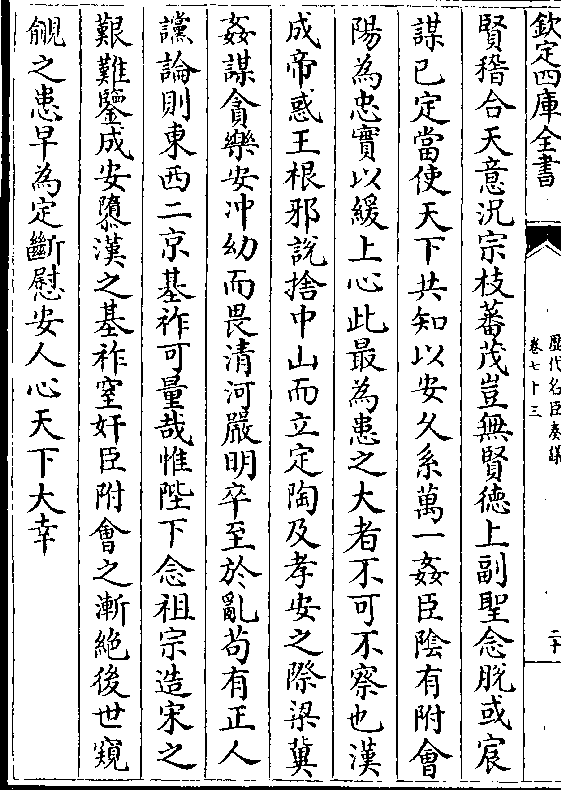 欽定四庫全書
歷代名臣奏議
卷七十三
二十
賢稽合天意況宗枝蕃茂豈無賢德上副聖念脱或宸
謀已定當使天下共知以安久系萬一姦臣陰有附會
陽為忠實以緩上心此最為患之大者不可不察也漢
成帝惑王根邪說捨中山而立定陶及孝安之際梁冀
姦謀貪樂安冲幼而畏清河嚴明卒至於亂苟有正人
讜論則東西二京基祚可量哉惟陛下念祖宗造宋之
艱難鑒成安隳漢之基祚窒奸臣附會之漸絶後世窺
覦之患早為定斷慰安人心天下大幸